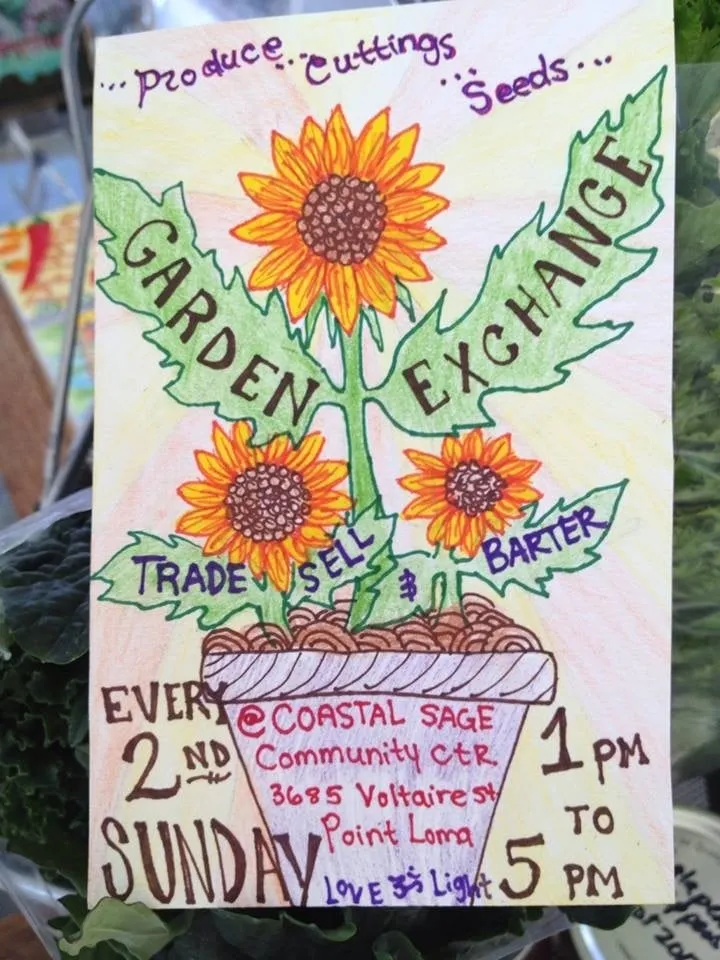 ...Produce...Cuttings
...Seeds...
GARDEN EXCHANGE
TRADE SELL $ BARTER
EVERY
2ND
SUNDAY
@ COASTAL SAGE
Community CtR.
3685 Voltaire st
Point Loma
LOVE ૐ Light
1 PM
TO
5 PM